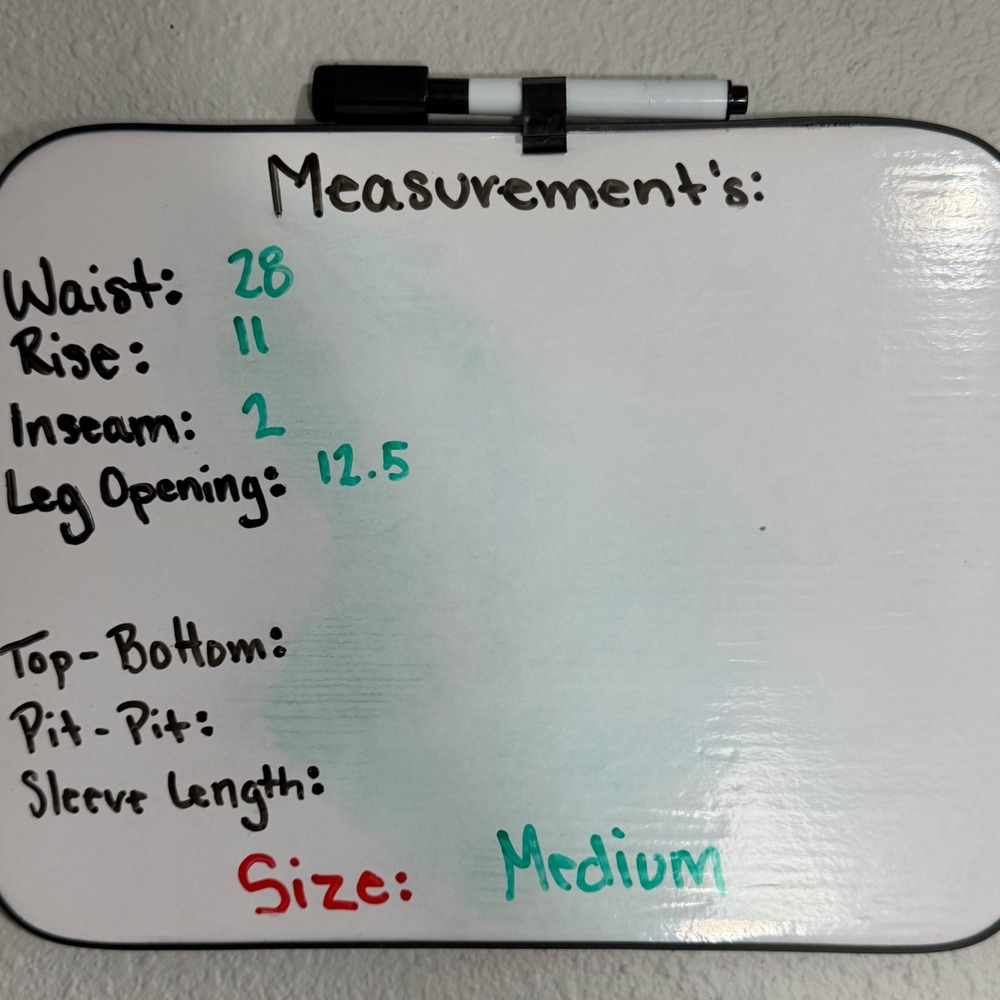 Measurement's:
Waist: 28
Rise: 11
Inseam: 2
Leg Opening: 12.5
Top-Bottom:
Pit-Pit:
Sleeve Length:
Size: Medium